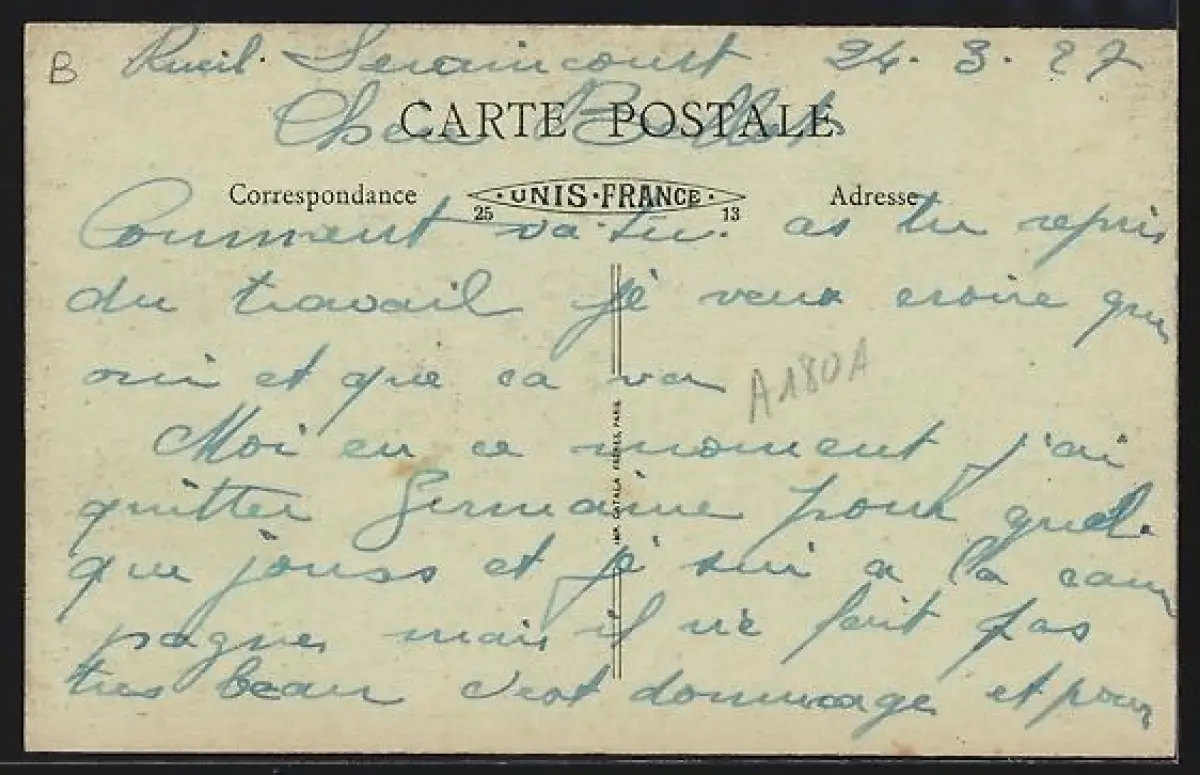 B Rueil. Seraincourt 24.3.27
CARTE POSTALE
Correspondance
UNIS · FRANCE
Adresse
25 13
Comment va-tu. as tu repris
du travail je veux croire que
oui et que ca va
A180A
Moi en ce moment j'ai
quitter Germaine pour quel-
que jours et je sui a la cam
pagne mais il ne fait pas
tres beau c'est dommage et pour
IMP. CATALA FRÈRES, PARIS